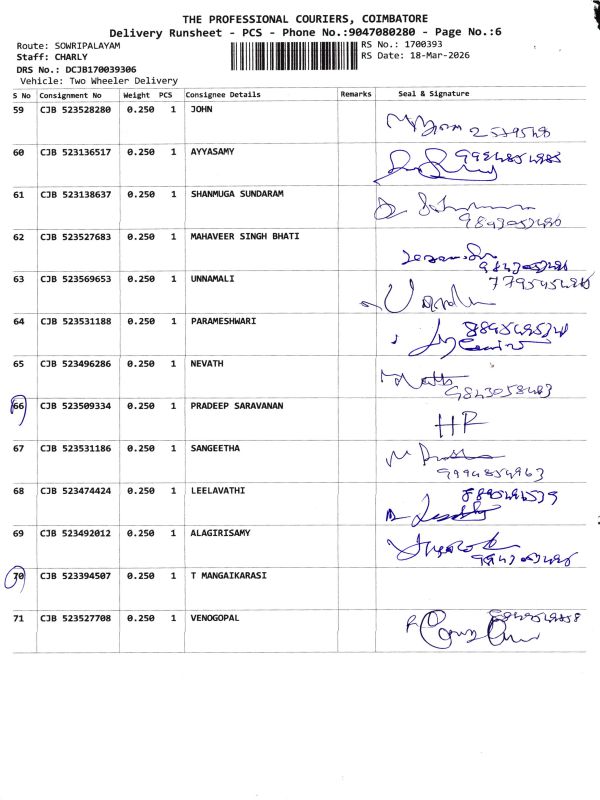 THE PROFESSIONAL COURIERS, COIMBATORE
Delivery Runsheet - PCS - Phone No.:9047080280 - Page No.:6
Route: SOWRIPALAYAM
RS No.: 1700393
Staff: CHARLY
RS Date: 18-Mar-2026
DRS No.: DCJB170039306
Vehicle: Two Wheeler Delivery
S No Consignment No Weight PCS Consignee Details Remarks Seal & Signature
59 CJB 523528280 0.250 1 JOHN
60 CJB 523136517 0.250 1 AYYASAMY
61 CJB 523138637 0.250 1 SHANMUGA SUNDARAM
62 CJB 523527683 0.250 1 MAHAVEER SINGH BHATI
63 CJB 523569653 0.250 1 UNNAMALI
64 CJB 523531188 0.250 1 PARAMESHWARI
65 CJB 523496286 0.250 1 NEVATH
66 CJB 523509334 0.250 1 PRADEEP SARAVANAN
67 CJB 523531186 0.250 1 SANGEETHA
9994854963
68 CJB 523474424 0.250 1 LEELAVATHI
69 CJB 523492012 0.250 1 ALAGIRISAMY
70 CJB 523394507 0.250 1 T MANGAIKARASI
71 CJB 523527708 0.250 1 VENOGOPAL